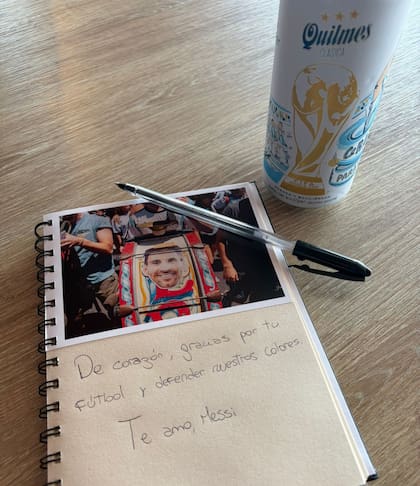 Quilmes
CLÁSICA
FIFA
De corazón, gracias por tu
fútbol y defender nuestros colores.
Te amo, Messi